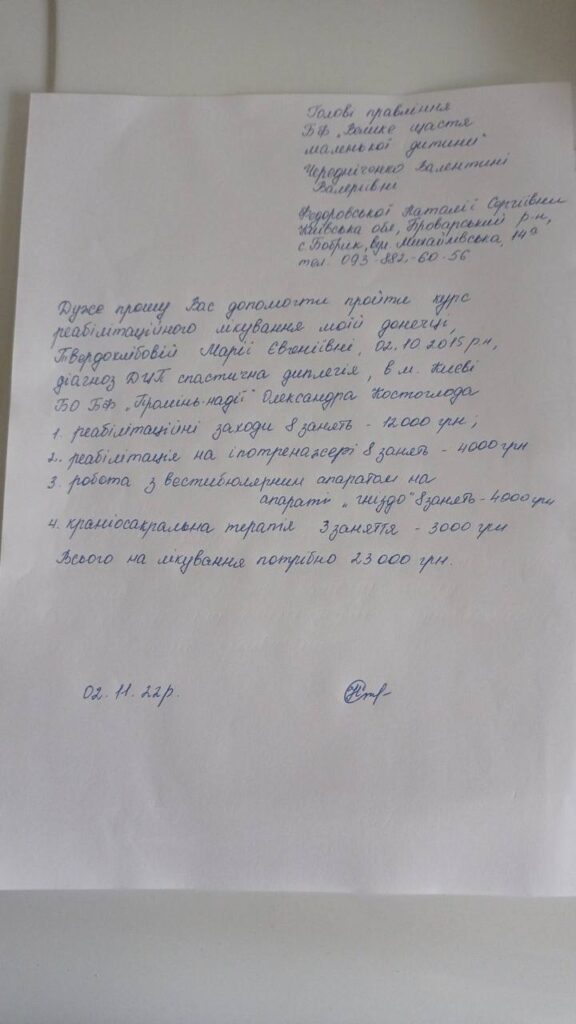 Голові правління
БФ „Велике щастя
маленької дитини"
Чередніченко Валентині
Валеріївні
Федоровської Наталії Сергіївни
Київська обл, Броварський р-н,
с. Бобрик, вул. Михайлівська, 14а
тел. 093-882-60-56
Дуже прошу Вас допомогти пройти курс
реабілітаційного лікування моїй донечці,
Твердохлібовій Марії Євгеніївні, 02.10.2015 р.н,
діагноз ДЦП спастична диплегія, в м. Києві
БО БФ „Промінь-надії" Олександра Костоглода
1. реабілітаційні заходи 8 занять - 12000 грн;
2. реабілітація на іпотренажері 8 занять - 4000 грн
3. робота з вестибюлярним апаратом на
апараті „гніздо" 8 занять - 4000 грн
4. краніосакральна терапія 3 заняття - 3000 грн
Всього на лікування потрібно 23 000 грн.
02.11.22р.